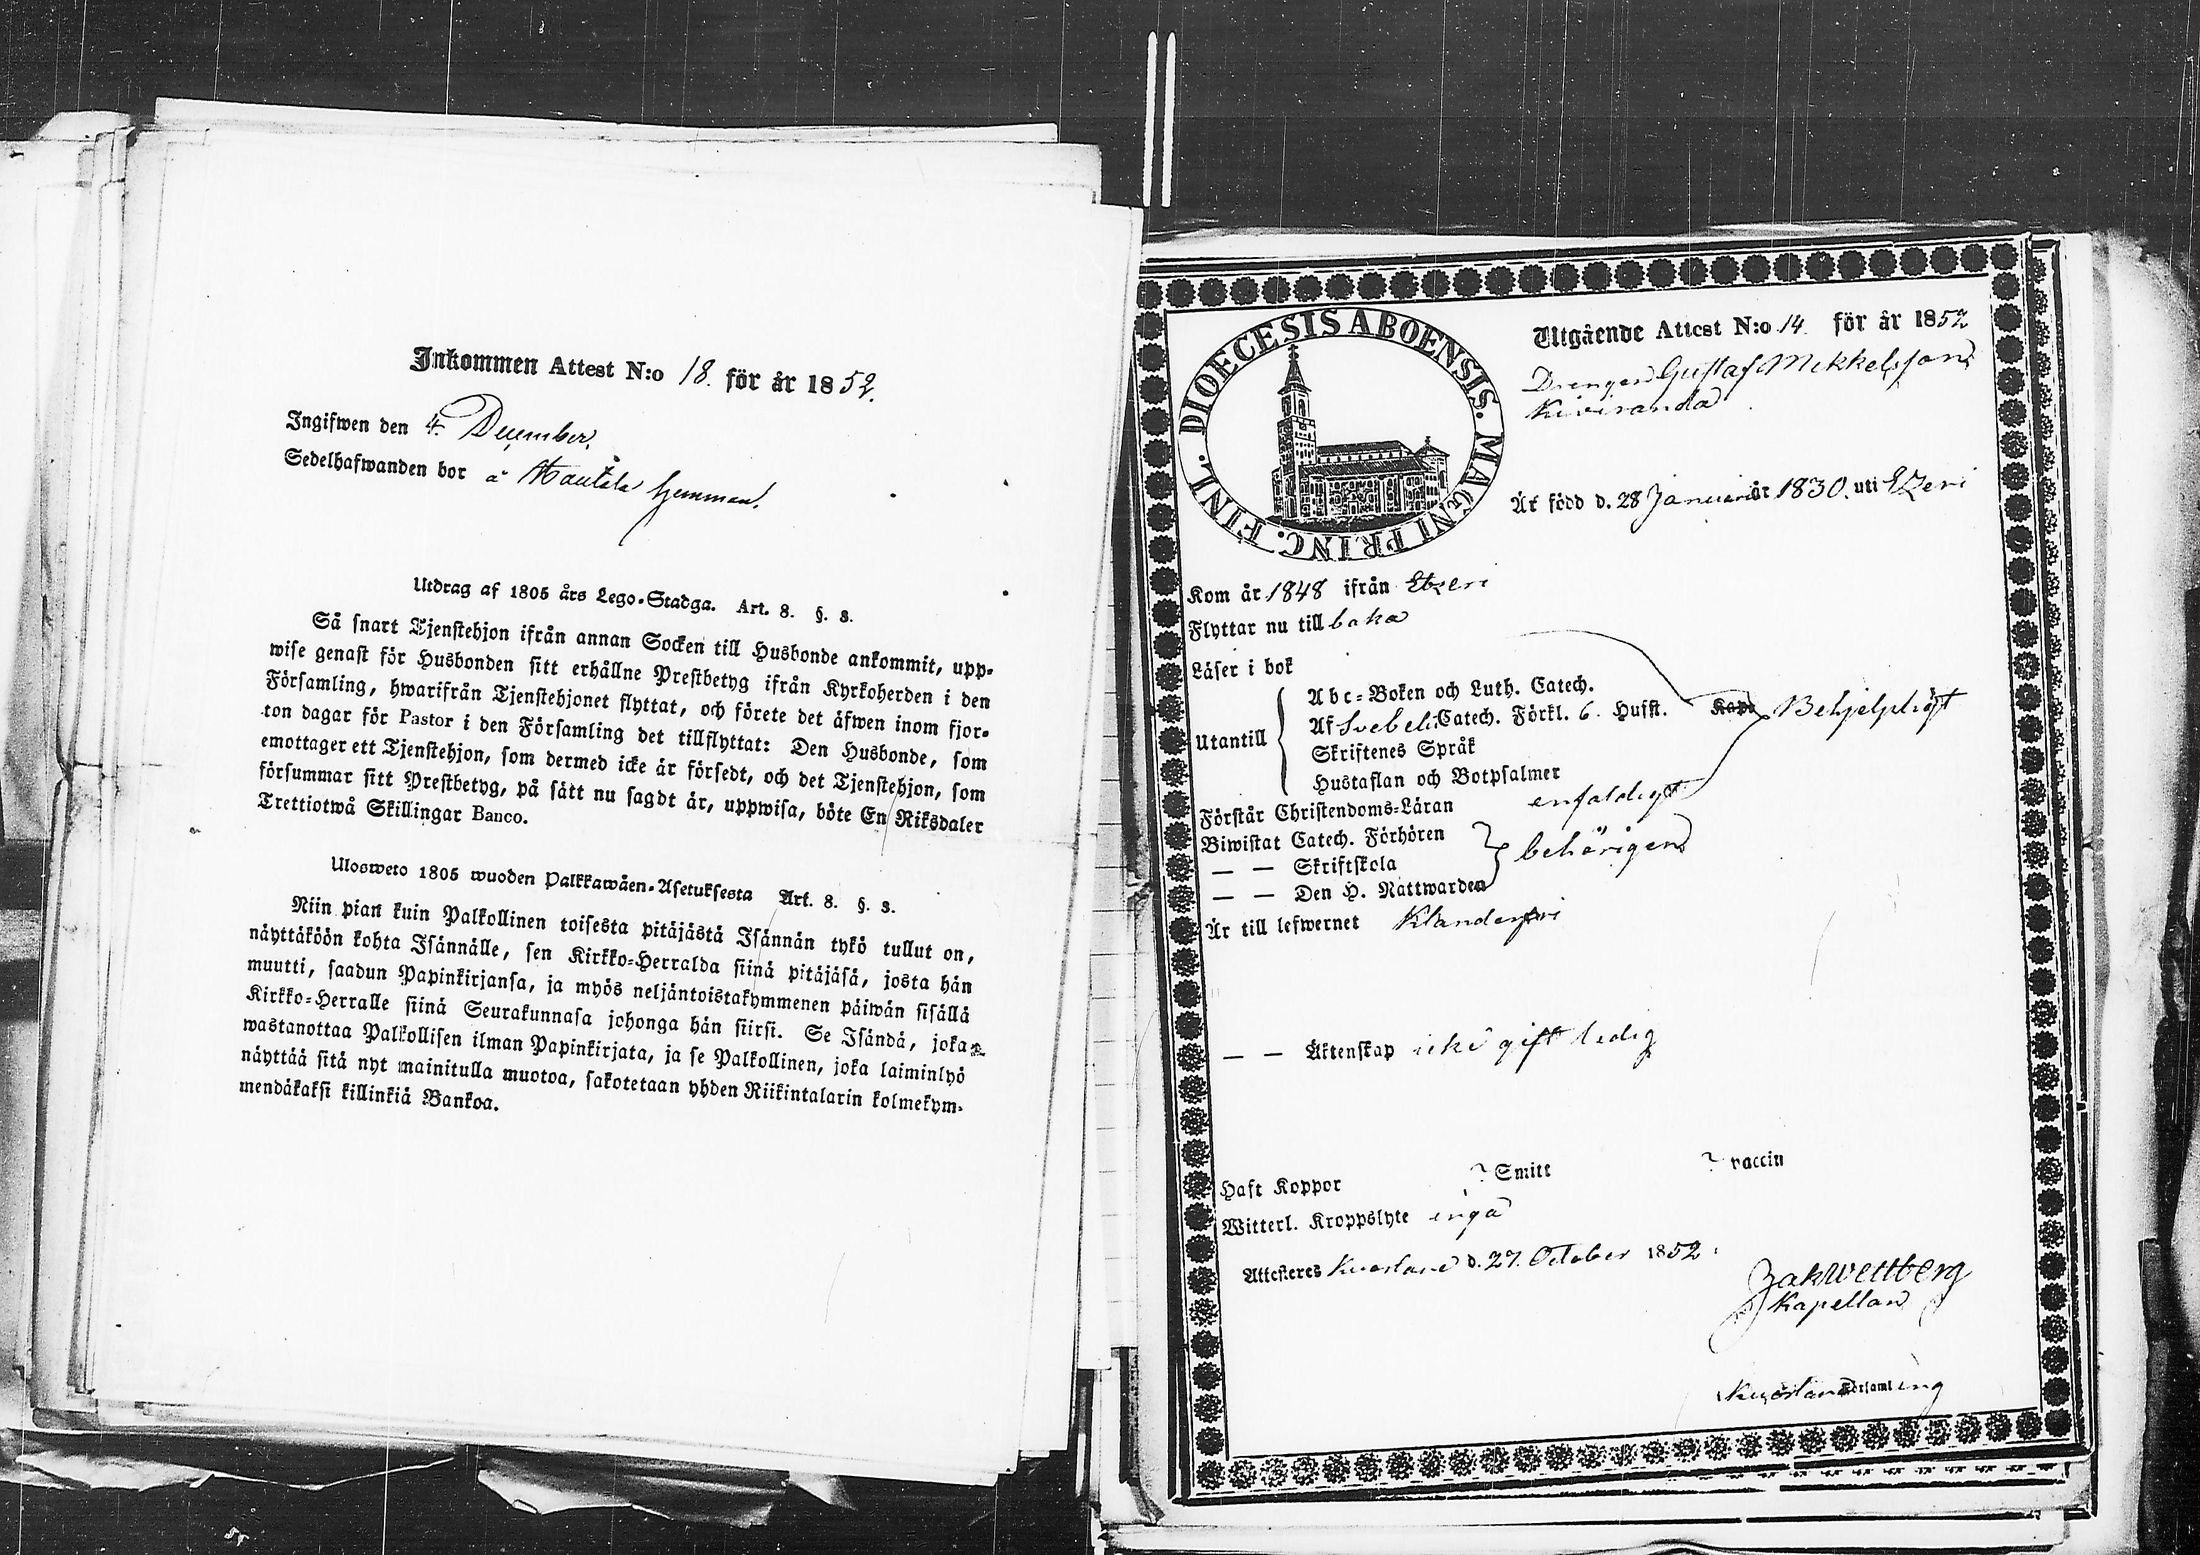 Inkommen Attest N:o 18. för år 1852.
Ingifwen den 4. December.
Sedelhafwanden bor å hemman.
Utdrag af 1805 års Lego-Stadga. Art. 8. §. 3.
Så snart Tjenstehjon ifrån annan Socken till Husbonde ankommit, upp-
wise genast för Husbonden sitt erhållne Prestbetyg ifrån Kyrkoherden i den
Församling, hwarifrån Tjenstehjonet flyttat, och förete det äfwen inom fjor-
ton dagar för Pastor i den Församling det tillflyttat: Den Husbonde, som
emottager ett Tjenstehjon, som dermed icke är försedt, och det Tjenstehjon, som
försummar sitt Prestbetyg, på sätt nu sagdt är, uppwisa, böte En Riksdaler
Trettiotwå Skillingar Banco.
Ulosweto 1805 wuoden Palkkawäen-Asetuksesta Art. 8. §. 3.
Niin pian kuin Palkollinen toisesta pitäjästä Isännän tykö tullut on,
näyttäköön kohta Isännälle, sen Kirkko-Herralda siinä pitäjäsä, josta hän
muutti, saadun Papinkirjansa, ja myös neljäntoistakymmenen päiwän sisällä
Kirkko-Herralle siinä Seurakunnasa johonga hän siirsi. Se Isändä, joka
wastanottaa Palkollisen ilman Papinkirjata, ja se Palkollinen, joka laiminlyö
näyttää sitä nyt mainitulla muotoa, sakotetaan yhden Riikintalarin kolmekym-
mendäkaksi killinkiä Bankoa.
DIOECESIS ABOENSIS. MAGNI PRINC. FINL.
Utgående Attest N:o 14. för år 1852
Drengen Gustaf Mikkelsson
Kiviranda
Är född d. 28 Januari år 1830. uti Etzeri
Kom år 1848 ifrån Etzeri
Flyttar nu till baka
Läser i bok
Utantill
Abc-Boken och Luth. Catech.
Af Svebeli Catech. Förkl. 6. Hufst. Behjelpligt
Skriftenes Språk
Hustaflan och Botpsalmer
Förstår Christendoms-Läran enfaldigt
Biwistat Catech. Förhören
— — Skriftskola behörigen
— — Den H. Nattwarden
Är till lefwernet Klanderfri
— — Äktenskap icke gift ledig
Haft Koppor ? Smitt ? vaccin
Witterl. Kroppslyte inga
Attesteres Kuortane d. 27. October 1852.
Zak Wettberg
Kapellan
Kuortane Församling